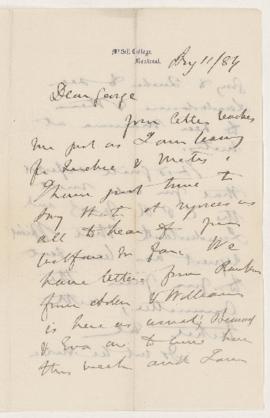 McGill College,
Montreal.
Dear George
Your letter reaches
me just as I am leaving
for Quebec & Metis.
I have just time to
say that it rejoices us
all to hear of your
welfare so far. We
have letters from Rankine
from &
is here as usual;
& Eva are to leave here
this week and I am